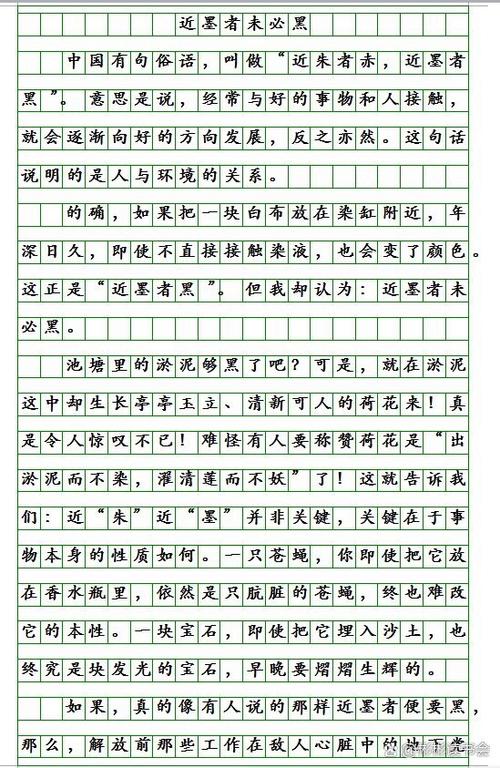 近墨者未必黑
中国有句俗语，叫做“近朱者赤，近墨者
黑”。意思是说，经常与好的事物和人接触，
就会逐渐向好的方向发展，反之亦然。这句话
说明的是人与环境的关系。
的确，如果把一块白布放在染缸附近，年
深日久，即使不直接接触染液，也会变了颜色。
这正是“近墨者黑”。但我却认为：近墨者未
必黑。
池塘里的淤泥够黑了吧？可是，就在淤泥
这中却生长亭亭玉立、清新可人的荷花来！真
是令人惊叹不已！难怪有人要称赞荷花是“出
淤泥而不染，濯清莲而不妖”了！这就告诉我
们：近“朱”近“墨”并非关键，关键在于事
物本身的性质如何。一只苍蝇，你即使把它放
在香水瓶里，依然是只肮脏的苍蝇，终也难改
它的本性。一块宝石，即使把它埋入沙土，也
终究是块发光的宝石，早晚要熠熠生辉的。
如果，真的像有人说的那样近墨者便要黑，
那么，解放前那些工作在敌人心脏中的地下党